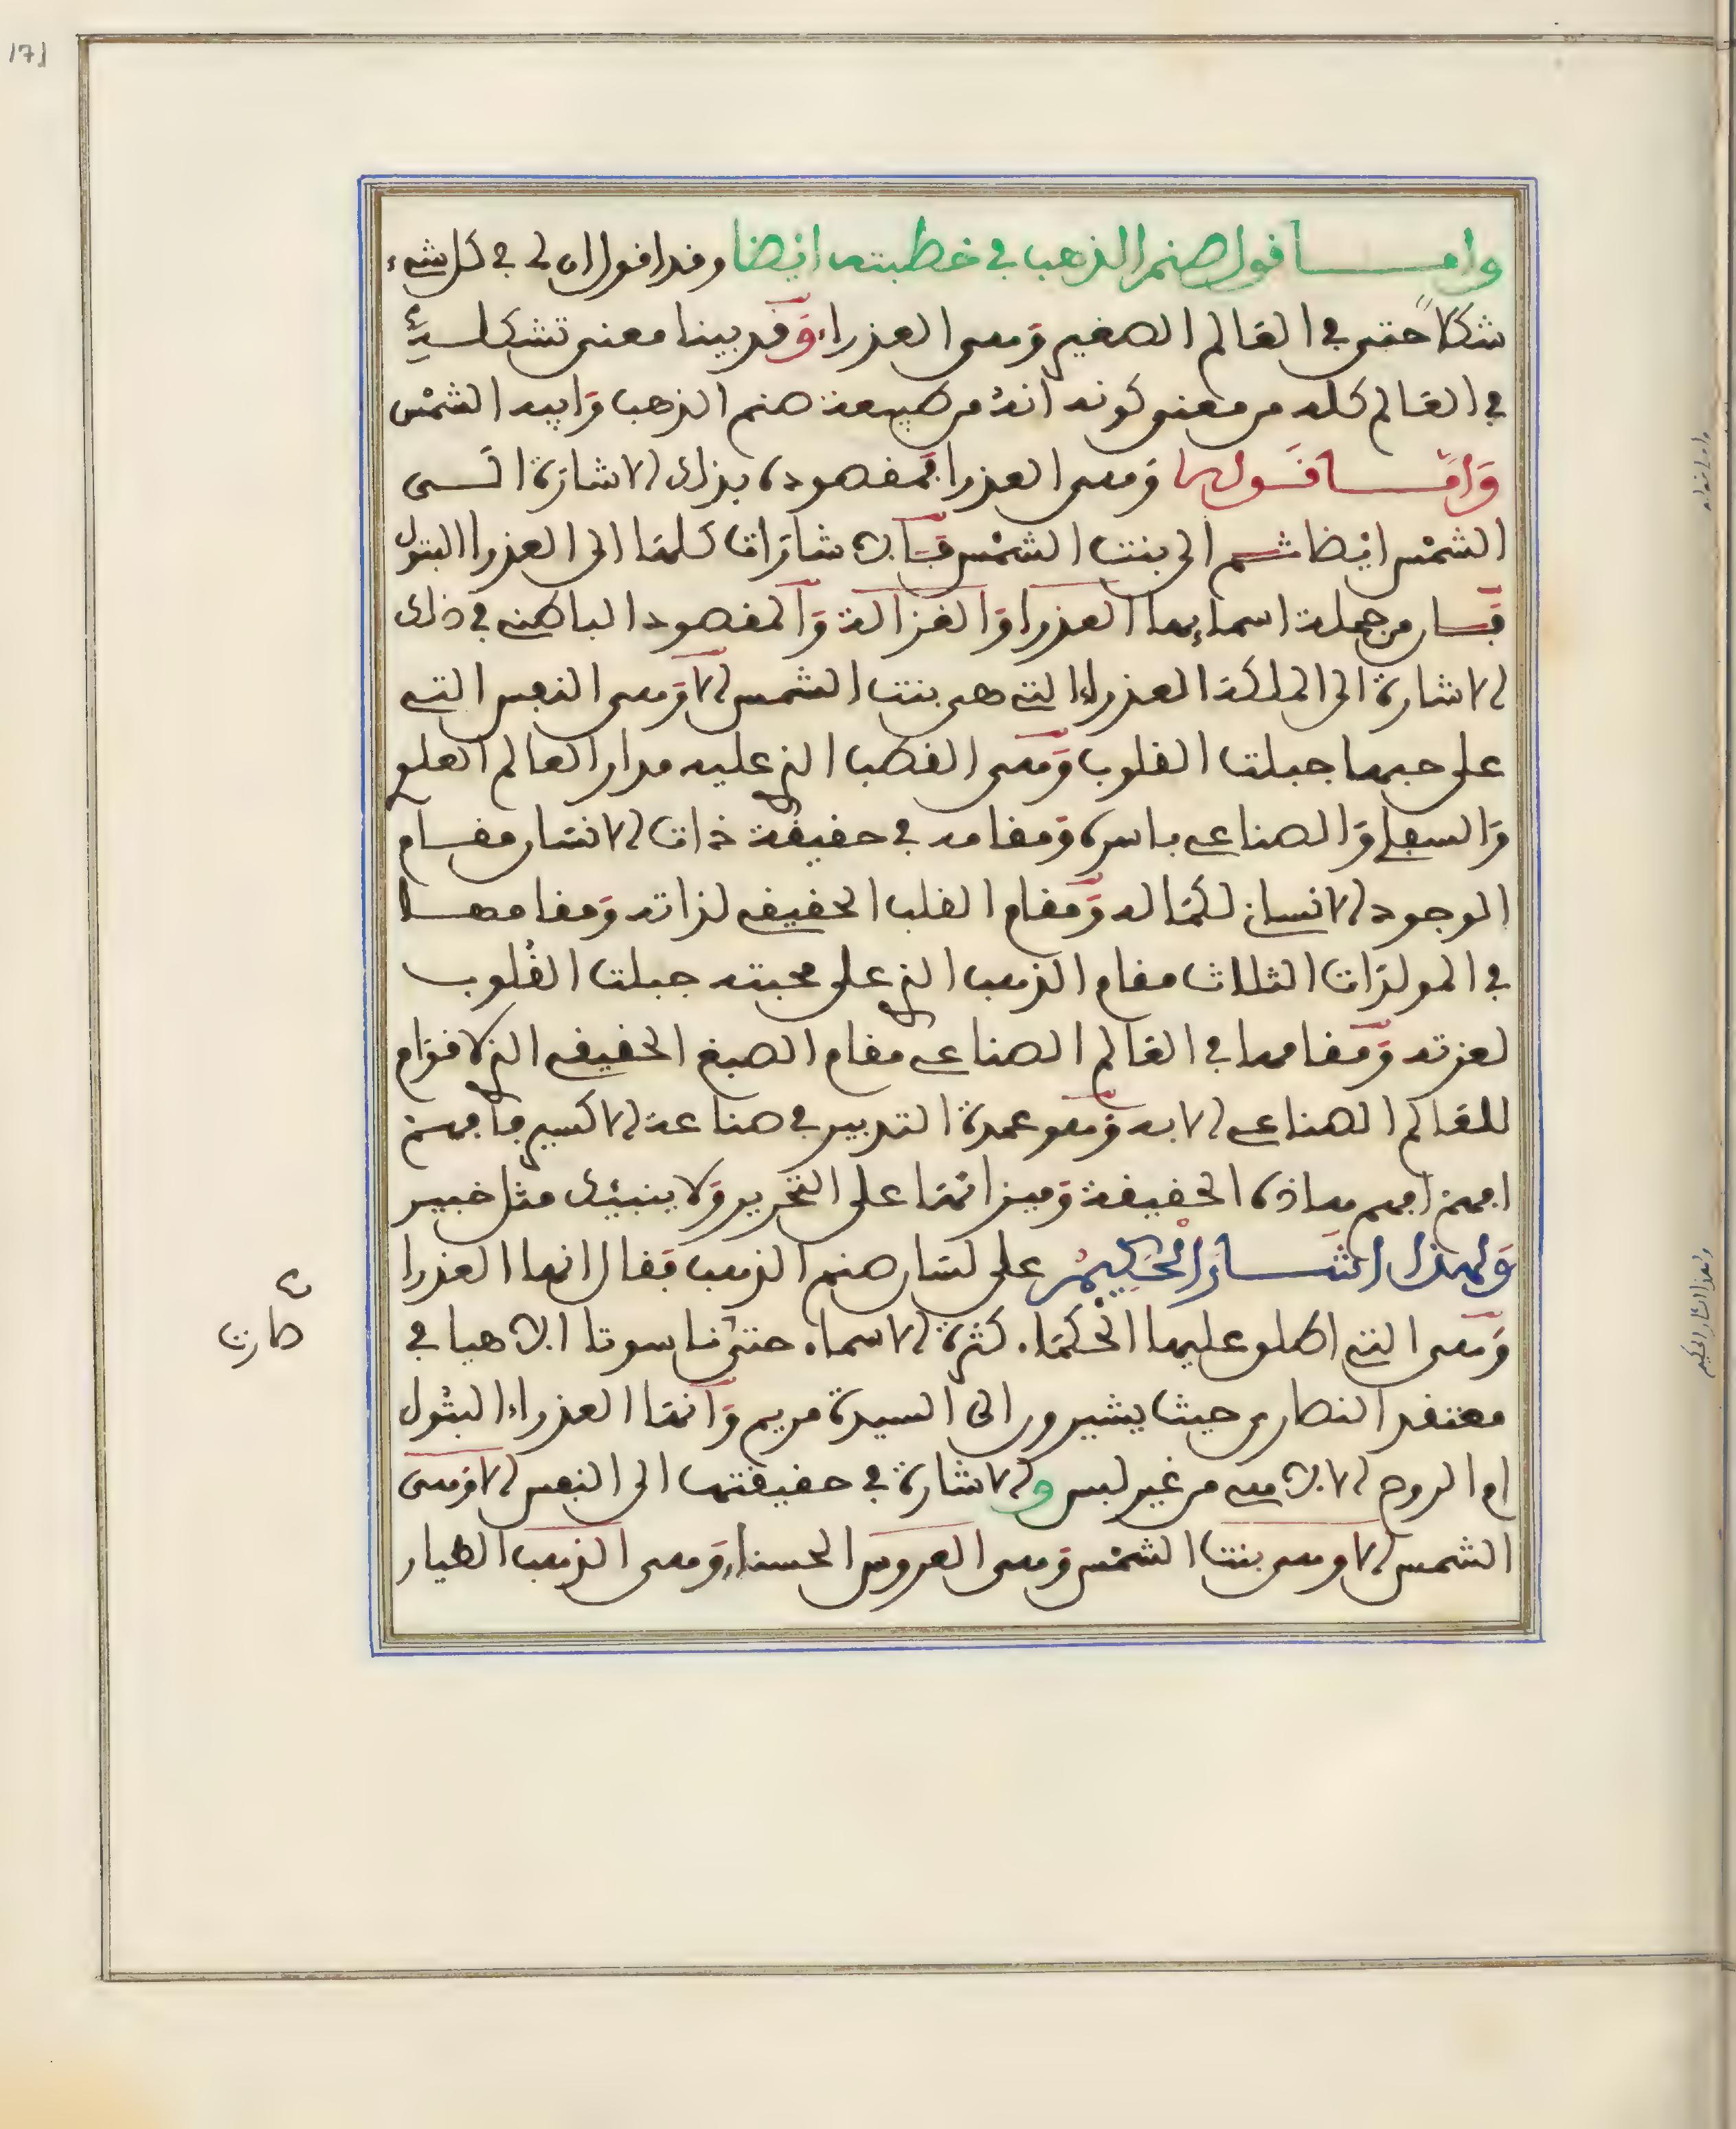 171
واما قول صنم الذهب في خطبته ايضا وقد اقول ان لي في كل شيء
شكلا حتى في العالم الصغير وهي العذراء وقد بينا معنى تشكله
في العالم كله من معنى كونه انه من طبيعة صنم الذهب وابيه الشمس
واما قولها وهي العذرا فمقصوده بذلك الاشارة الى
الشمس ايضا ثم الى بنت الشمس فالاشارات كلها الى العذرا البتول
فان من جملة اسمايها العذرا والغزالة والمقصود الباطني في ذلك
الاشارة الى الملكة العذراء التي هي بنت الشمس الا وهي النفس التي
على حبها جبلت القلوب وهي القطب الذي عليه مدار العالم العلوي
والسفلي والصناعي باسره ومقامه في حقيقة ذات الانسان مقام
الوجود الانساني لكماله ومقام القلب الحقيقي لذاته ومقامها
في المولدات الثلاث مقام الذهب الذي على محبته جبلت القلوب
لعزته ومقامها في العالم الصناعي مقام الصبغ الحقيقي الذي لا قوام
للعالم الصناعي الا به وهو عمدة التدبير في صناعة الاكسير فافهم
افهم افهم هاذه الحقيقة وميزانها على التحرير ولا ينبئك مثل خبير
ولهذا اشار الحكيم على لسان صنم الذهب فقال انها العذرا
وهي التي اطلق عليها الحكماء كثرة الاسماء حتى ناسوتا الاهيا في
صارت
معتقد النصارى حيث يشيرون الى السيدة مريم وانها العذراء البتول
ام الروح الالاهي من غير لبس والاشارة في حقيقتها الى النفس الا وهي
الشمس الا وهي بنت الشمس وهي العروس الحسناء وهي الذهب الطيار
ولهذا اشار الحكيم